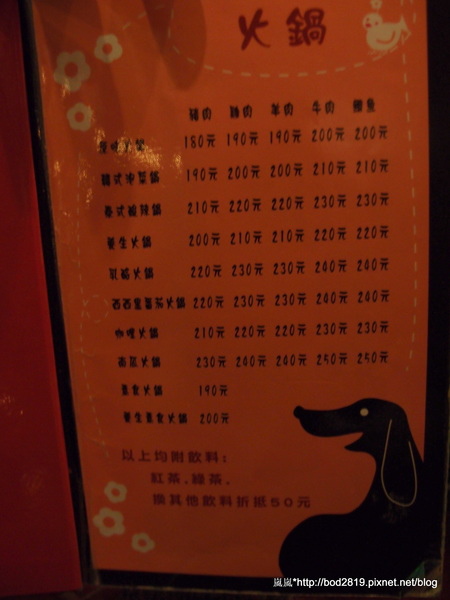 火鍋
豬肉 雞肉 羊肉 牛肉 鯛魚
原味火鍋 180元 190元 190元 200元 200元
韓式泡菜鍋 190元 200元 200元 210元 210元
泰式酸辣鍋 210元 220元 220元 230元 230元
養生火鍋 200元 210元 210元 220元 220元
火鍋 220元 230元 230元 240元 240元
番茄火鍋 220元 230元 230元 240元 240元
咖哩火鍋 210元 220元 220元 230元 230元
南瓜火鍋 230元 240元 240元 250元 250元
素食火鍋 190元
養生素食火鍋 200元
以上均附飲料:
紅茶.綠茶.
換其他飲料折抵50元
嵐嵐*http://bod2819.pixnet.net/blog